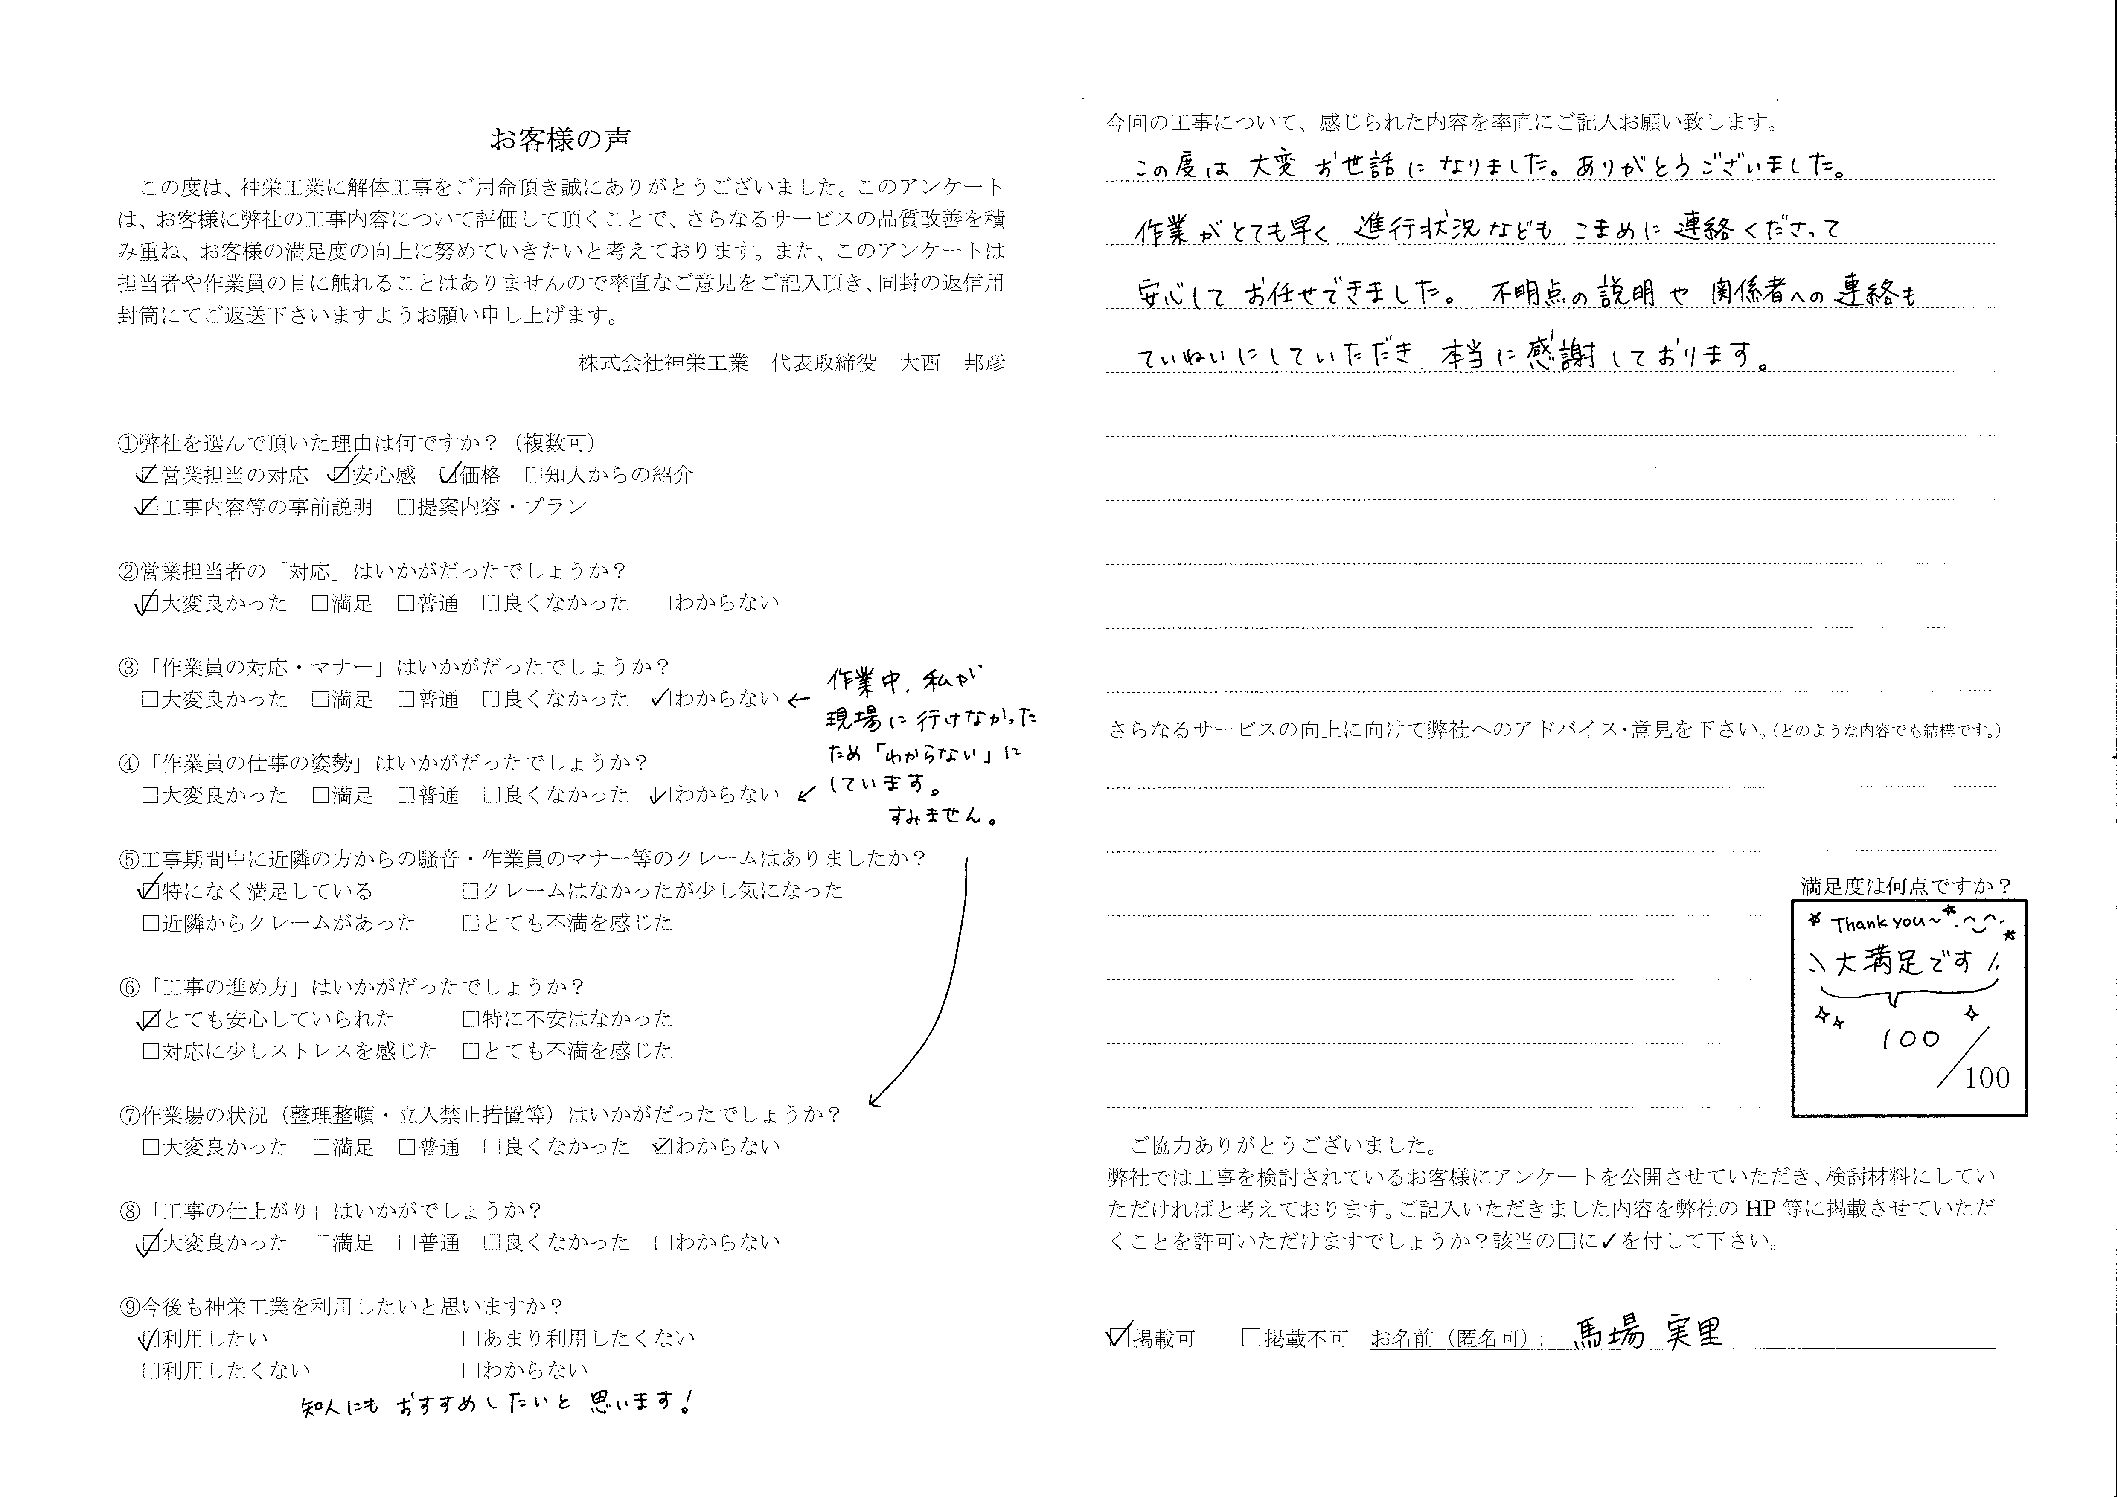 お客様の声
この度は、神栄工業に解体工事をご用命頂き誠にありがとうございました。このアンケート
は、お客様に弊社の工事内容について評価して頂くことで、さらなるサービスの品質改善を積
み重ね、お客様の満足度の向上に努めていきたいと考えております。また、このアンケートは
担当者や作業員の目に触れることはありませんので率直なご意見をご記入頂き、同封の返信用
封筒にてご返送下さいますようお願い申し上げます。
株式会社神栄工業　代表取締役　大西　邦彦
①弊社を選んで頂いた理由は何ですか？（複数可）
☑営業担当の対応　☑安心感　☑価格　□知人からの紹介
☑工事内容等の事前説明　□提案内容・プラン
②営業担当者の「対応」はいかがだったでしょうか？
☑大変良かった　□満足　□普通　□良くなかった　□わからない
③「作業員の対応・マナー」はいかがだったでしょうか？
□大変良かった　□満足　□普通　□良くなかった　☑わからない ←
作業中、私が
現場に行けなかった
ため「わからない」に
しています。
すみません。
④「作業員の仕事の姿勢」はいかがだったでしょうか？
□大変良かった　□満足　□普通　□良くなかった　☑わからない ↙
⑤工事期間中に近隣の方からの騒音・作業員のマナー等のクレームはありましたか？
☑特になく満足している　□クレームはなかったが少し気になった
□近隣からクレームがあった　□とても不満を感じた
⑥「工事の進め方」はいかがだったでしょうか？
☑とても安心していられた　□特に不安はなかった
□対応に少しストレスを感じた　□とても不満を感じた
⑦作業場の状況（整理整頓・立入禁止措置等）はいかがだったでしょうか？
□大変良かった　□満足　□普通　□良くなかった　☑わからない
⑧「工事の仕上がり」はいかがでしょうか？
☑大変良かった　□満足　□普通　□良くなかった　□わからない
⑨今後も神栄工業を利用したいと思いますか？
☑利用したい　□あまり利用したくない
□利用したくない　□わからない
知人にも おすすめしたいと 思います！
今回の工事について、感じられた内容を率直にご記入お願い致します。
この度は 大変 お世話に なりました。ありがとうございました。
作業がとても早く 進行状況なども こまめに 連絡くださって
安心して お任せできました。 不明点の説明や 関係者への連絡も
ていねいにしていただき 本当に感謝しております。
さらなるサービスの向上に向けて弊社へのアドバイス・意見を下さい。（どのような内容でも結構です。）
満足度は何点ですか？
Thank you~
大満足です
100
／100
ご協力ありがとうございました。
弊社では工事を検討されているお客様にアンケートを公開させていただき、検討材料にしてい
ただければと考えております。ご記入いただきました内容を弊社の HP 等に掲載させていただ
くことを許可いただけますでしょうか？該当の□に✓を付して下さい。
☑掲載可　□掲載不可　お名前（匿名可）：馬場 実里